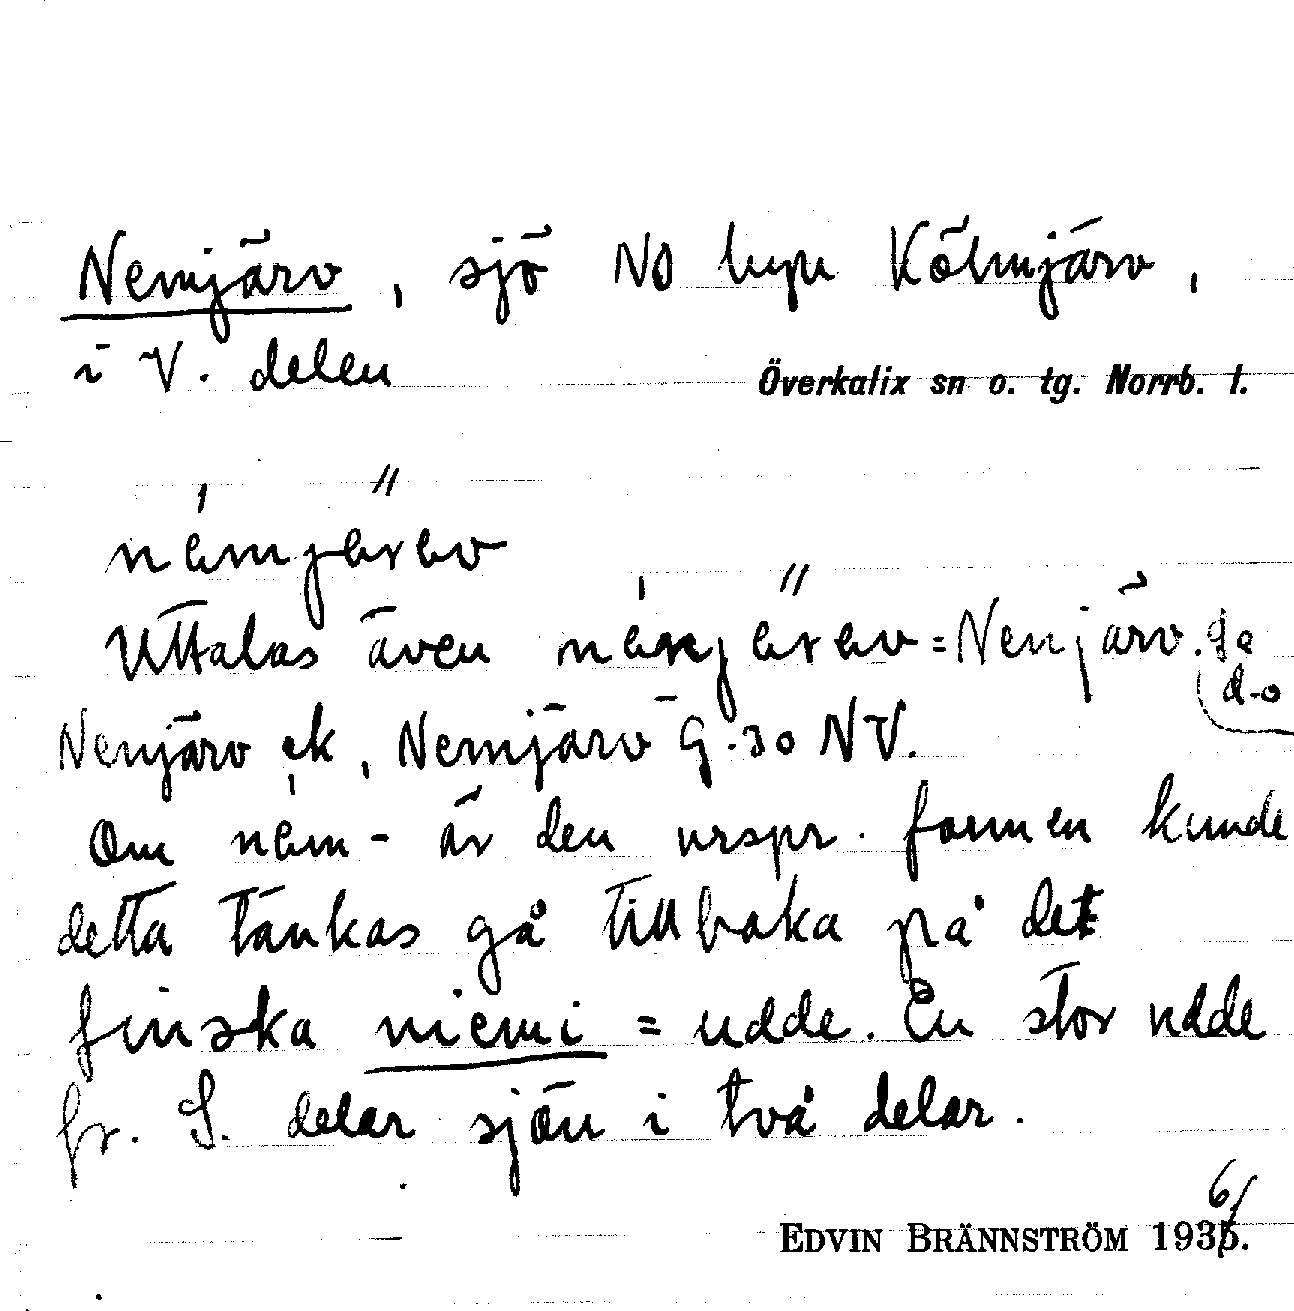 Nemjärv, sjö NO byn Kölmjärv,
i V. delen
Överkalix sn o. tg. Norrb. l.
némjerev
Uttalas även nénjerev = Nenjärv. Ja
d-o
Nenjärv ek, Nemjärv G.30 NV.
Om nem- är den urspr. formen kunde
detta tänkas gå tillbaka på det
finska niemi = udde. En stor udde
fr. S. delar sjön i två delar.
6/
EDVIN BRÄNNSTRÖM 1935.